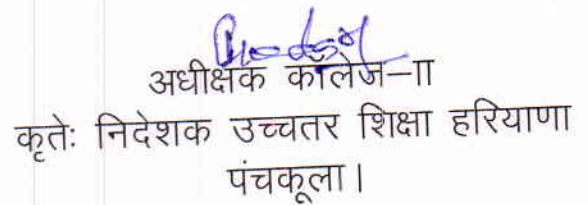 अधीक्षक कॉलेज–II
कृतेः निदेशक उच्चतर शिक्षा हरियाणा
पंचकूला।